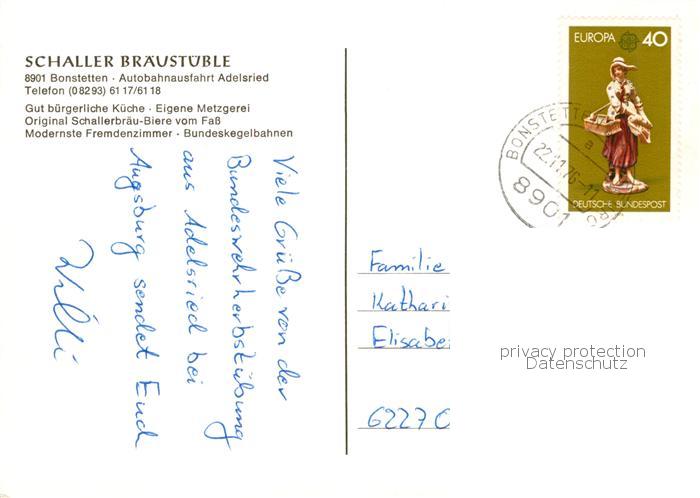 SCHALLER BRÄUSTÜBLE
8901 Bonstetten · Autobahnausfahrt Adelsried
Telefon (08293) 6117/6118
Gut bürgerliche Küche · Eigene Metzgerei
Original Schallerbräu-Biere vom Faß
Modernste Fremdenzimmer · Bundeskegelbahnen
Viele Grüße von der
Bundeswehrherbstübung
aus Adelsried bei
Augsburg sendet Euch
Willi
EUROPA 40
DEUTSCHE BUNDESPOST
BONSTETTE
a
22.11.76-11
8901
Familie
Kathari
Elisabe
6227 O
privacy protection
Datenschutz